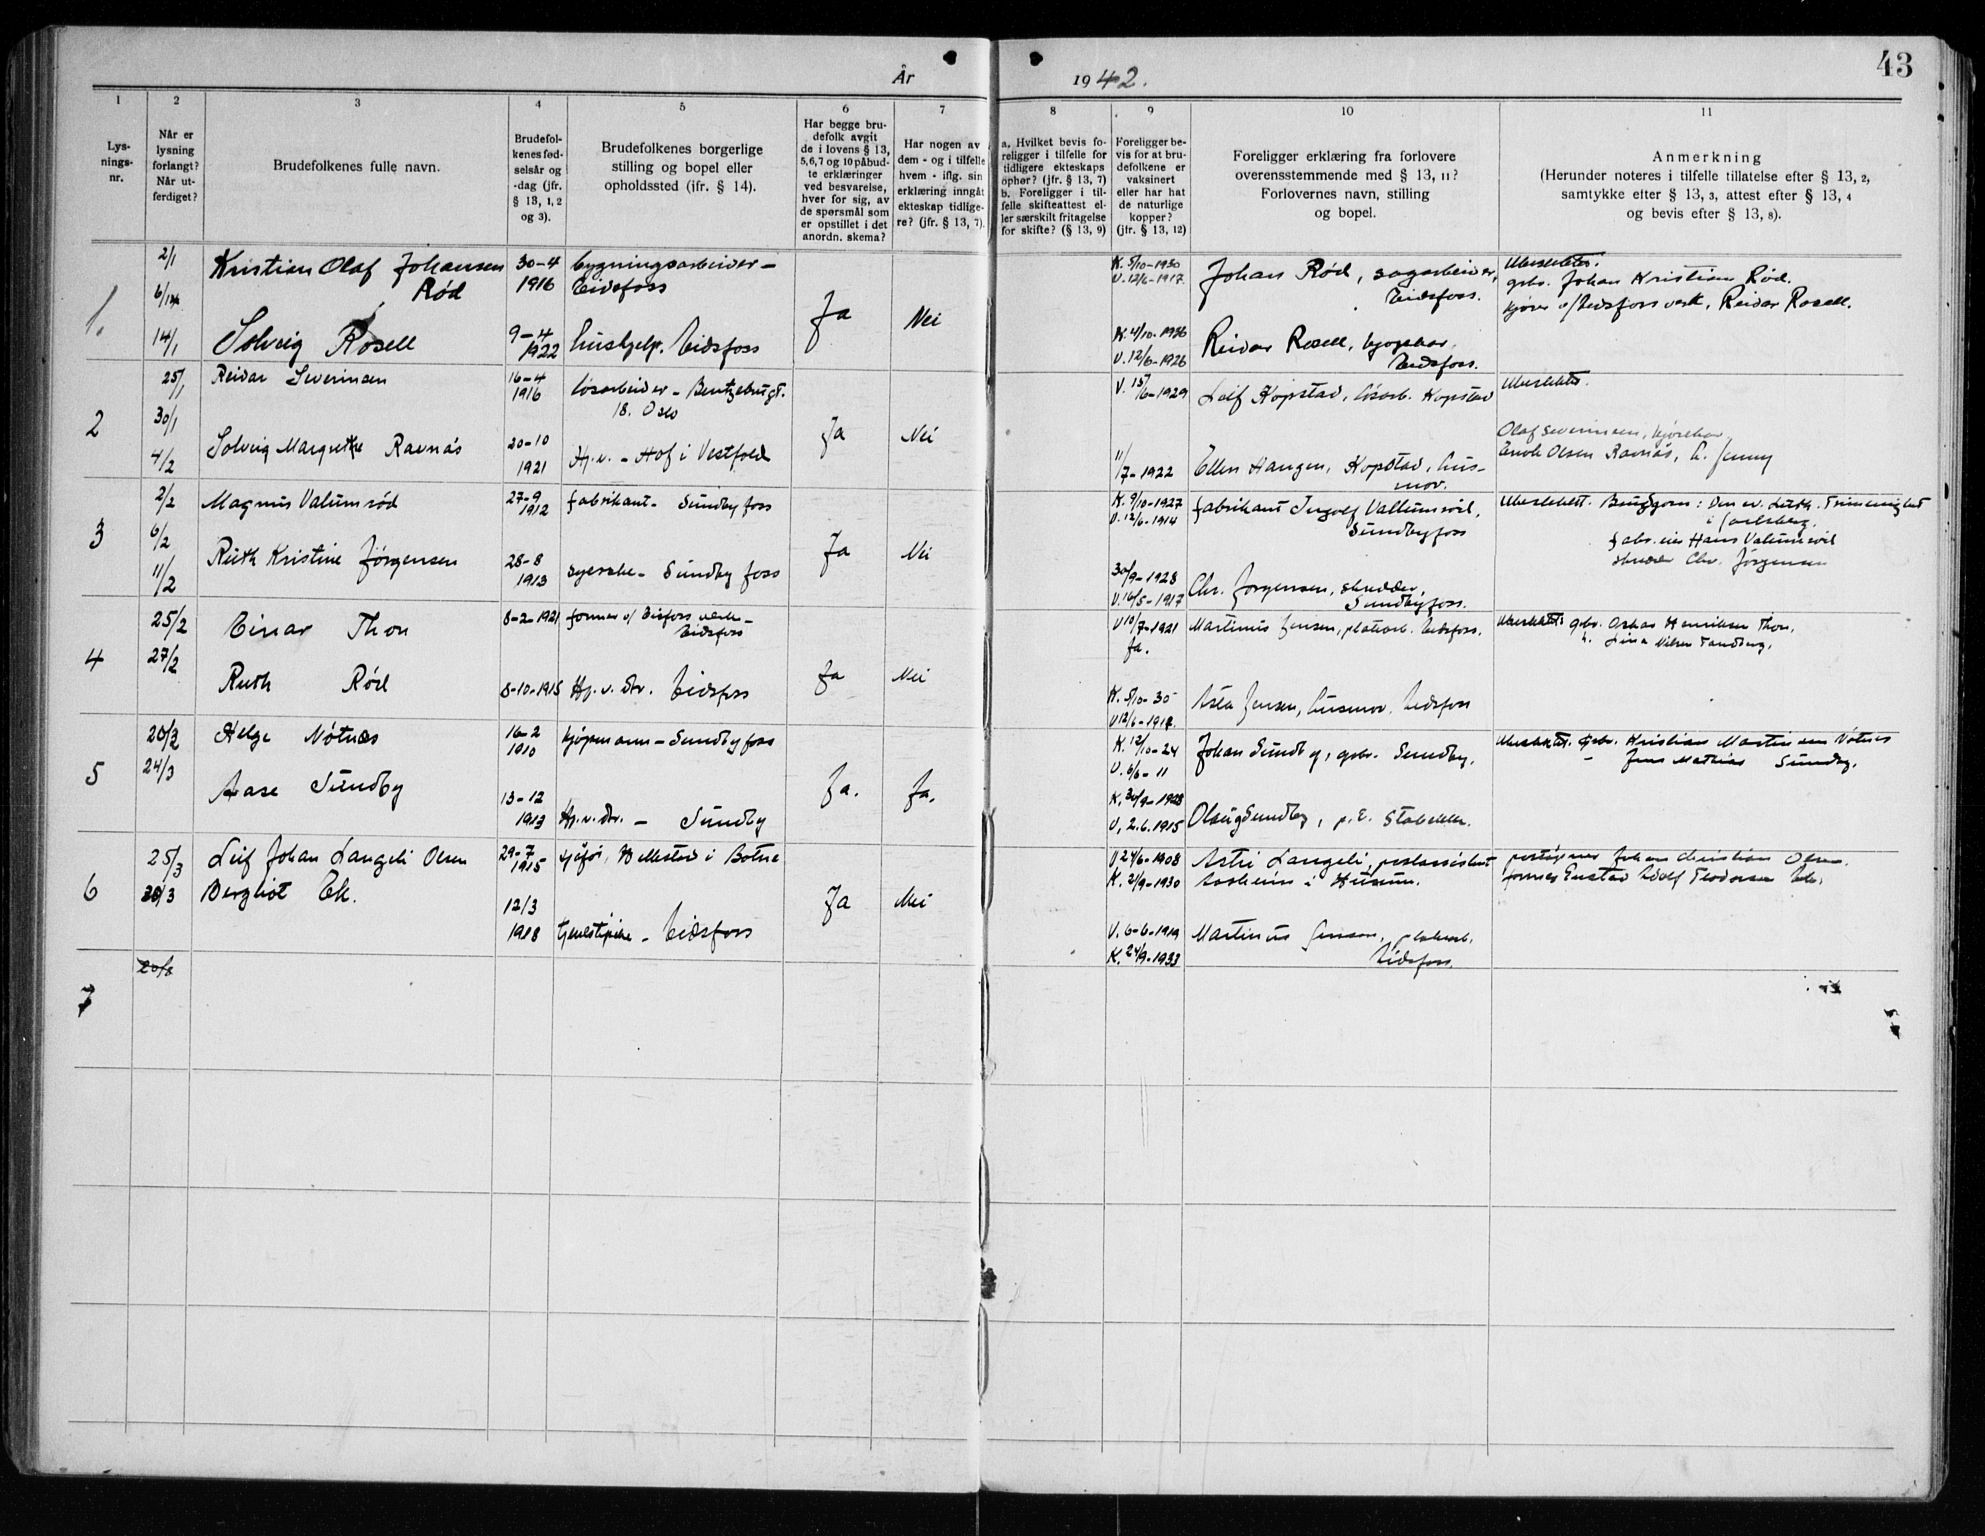 År 1942.
43
1 2 3 4 5 6 7 8 9 10 11
Lys-
nings-
nr.
Når er
lysning
forlangt?
Når ut-
ferdiget?
Brudefolkenes fulle navn.
Brudefol-
kenes fød-
selsår og
-dag (jfr.
§ 13, 1, 2
og 3).
Brudefolkenes borgerlige
stilling og bopel eller
opholdssted (jfr. § 14).
Har begge bru-
defolk avgit
de i lovens § 13,
5, 6, 7 og 10 påbud-
te erklæringer
ved besvarelse,
hver for sig, av
de spørsmål som
er opstillet i det
anordn. skema?
Har nogen av
dem - og i tilfelle
hvem - iflg. sin
erklæring inngåt
ekteskap tidlige-
re? (jfr. § 13, 7).
a. Hvilket bevis fo-
religger i tilfelle for
tidligere ekteskaps
ophør? (jfr. § 13, 7)
b. Foreligger i til-
felle skifteattest el-
ler særskilt fritagelse
for skifte? (§ 13, 9)
Foreligger be-
vis for at bru-
defolkene er
vaksinert
eller har hat
de naturlige
kopper?
(jfr. § 13, 12)
Foreligger erklæring fra forlovere
overensstemmende med § 13, 11?
Forlovernes navn, stilling
og bopel.
Anmerkning
(Herunder noteres i tilfelle tillatelse efter § 13, 2,
samtykke efter § 13, 3, attest efter § 13, 4
og bevis efter § 13, 8).
1.
2/1
14/1
Kristian Olaf Johansen
Rød
30-4
1916
bygningsarbeider -
Eidsfoss
Solveig Rosell
9-4
1922
hushjelp. Eidsfoss
Ja
Nei
K. 5/10-1930
V. 12/6-1917
Johan Rød, sagarbeider,
Eidsfoss.
K. 4/10-1936
V. 12/6-1926
Reidar Rosell,
Eidsfoss.
Ubeslektet.
gbr. Johan Kristian Rød.
kjører v/Eidsfoss verk, Reidar Rosell.
2
25/1
30/1
4/2
Reidar Severinsen
16-4
1916
løsarbeider - Bentzebrugt.
18. Oslo
Solveig Margrethe Ravnås
20-10
1921
Hj.v. - Hof i Vestfold
Ja
Nei
V. 15/6-1929
Leif Kopstad, løsarb. Kopstad
11/7-1922
Ellen Haugen, Kopstad, hus-
mor.
Ubeslektet.
Olaf Severinsen,
Enok Olsen Ravnås, h. Jenny
3
2/2
6/2
11/2
Magnus Valumrød
27-9
1912
fabrikant - Sundbyfoss
Ruth Kristine Jørgensen
28-8
1913
syerske - Sundbyfoss
Ja
Nei
K. 9/10-1927
V. 12/6-1914
fabrikant Ingolf Vallumrød,
Sundbyfoss
30/9-1928
V. 16/5-1917
Chr. Jørgensen, skredder,
Sundbyfoss.
Ubeslektet. Brudgom: Den ev. luth. Frimenighet
i Jarlsberg.
fabr.eier Hans Valumrød
skredder Chr. Jørgensen
4
25/2
27/2
Einar Thon
8-2-1921
former v/ Eidsfoss verk -
Eidsfoss
Ruth Rød
8-10-1915
Hj. v. dtr. Eidsfoss
Ja
Nei
V 10/7-1921
Ja.
Martinus Jensen, platearb. Eidsfoss.
K. 5/10-30
Asta Jensen, husmor. Eidsfoss
Ubeslektet. gbr. Oskar Henriksen Thon,
h. Lina Nilsen Tandberg.
5
20/3
24/3
Helge Nøtnes
16-2
1910
kjøpmann - Sundbyfoss
Aase Sundby
13-12
1913
Hj. v. dtr. - Sundby
Ja.
Ja.
K. 12/10-24
V. 6/6-11
Johan Sundby, gbr. Sundby.
K. 30/9-1928
V. 2.6.1915
Olaug Sundby, p.t. Stabekk.
Ubeslektet. Gbr. Kristian Martinsen Nøtnes
- Jens Mathias Sundby.
6
25/3
28/3
Leif Johan Langeli Olsen
29-7
1915
sjåfør, Hillestad i Botne
Bergliot Ek.
12/3
1918
tjenestepike - Eidsfoss
Ja
Nei
V. 24/6-1908
K. 2/9-1930
Astri Langeli, postassistent
V. 6-6-1919
K. 24/9-1933
Martinus Jensen, platearb.
Eidsfoss.
Johan Christian Olsen.
former Gustav Adolf Teodorsen Ek.
7